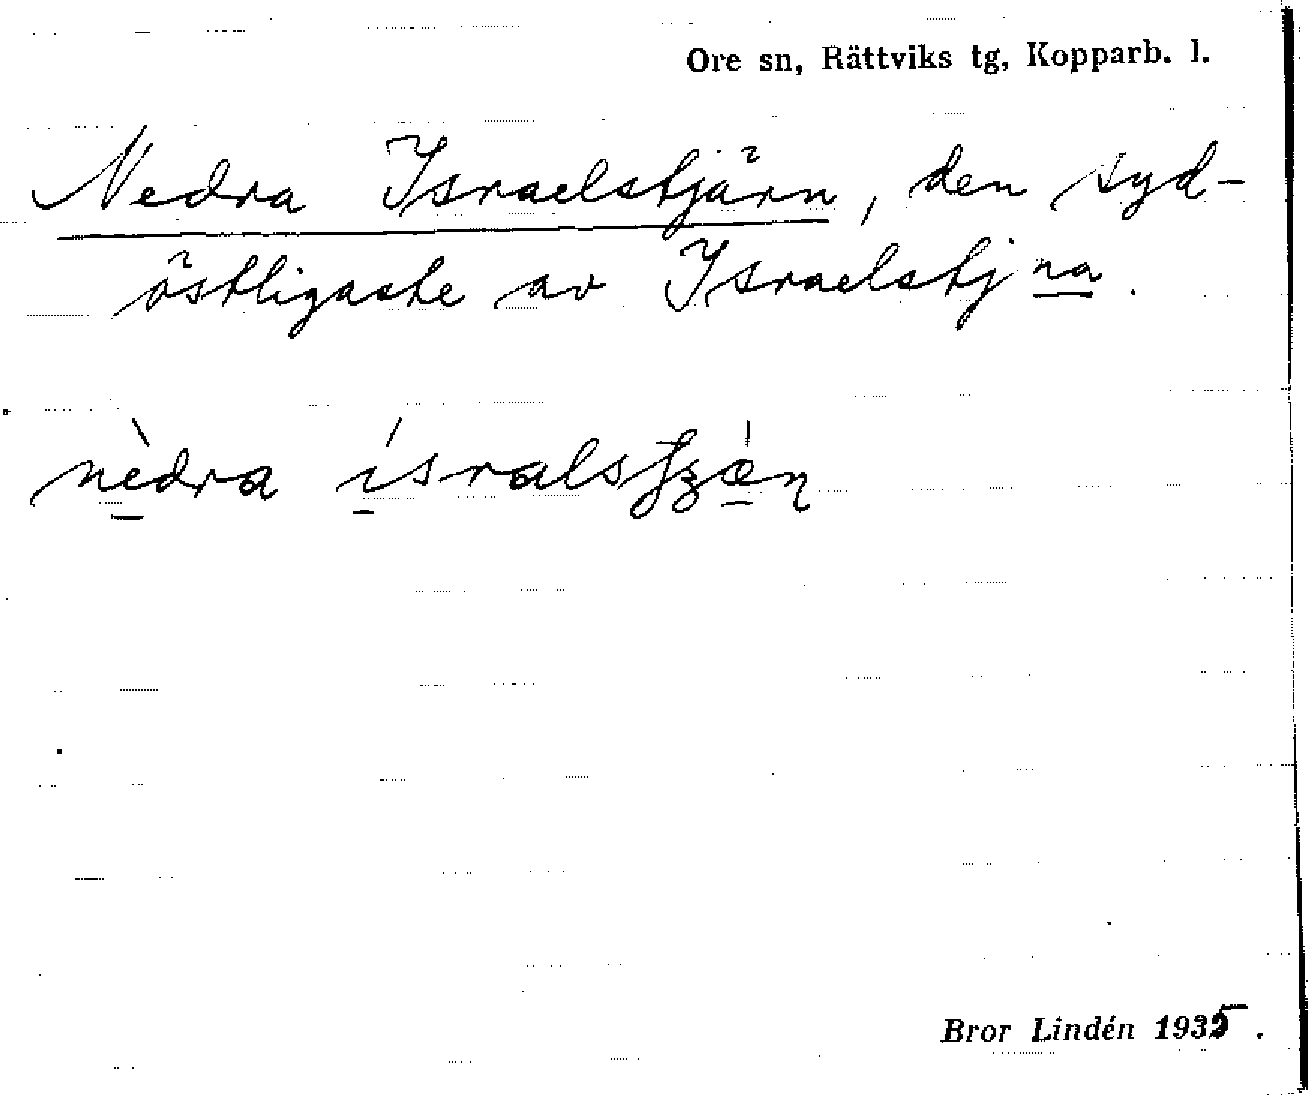 Ore sn, Rättviks tg, Kopparb. l.
Nedra Israelstjärn, den syd-
östligaste av Israelstj na.
Bror Lindén 1935.